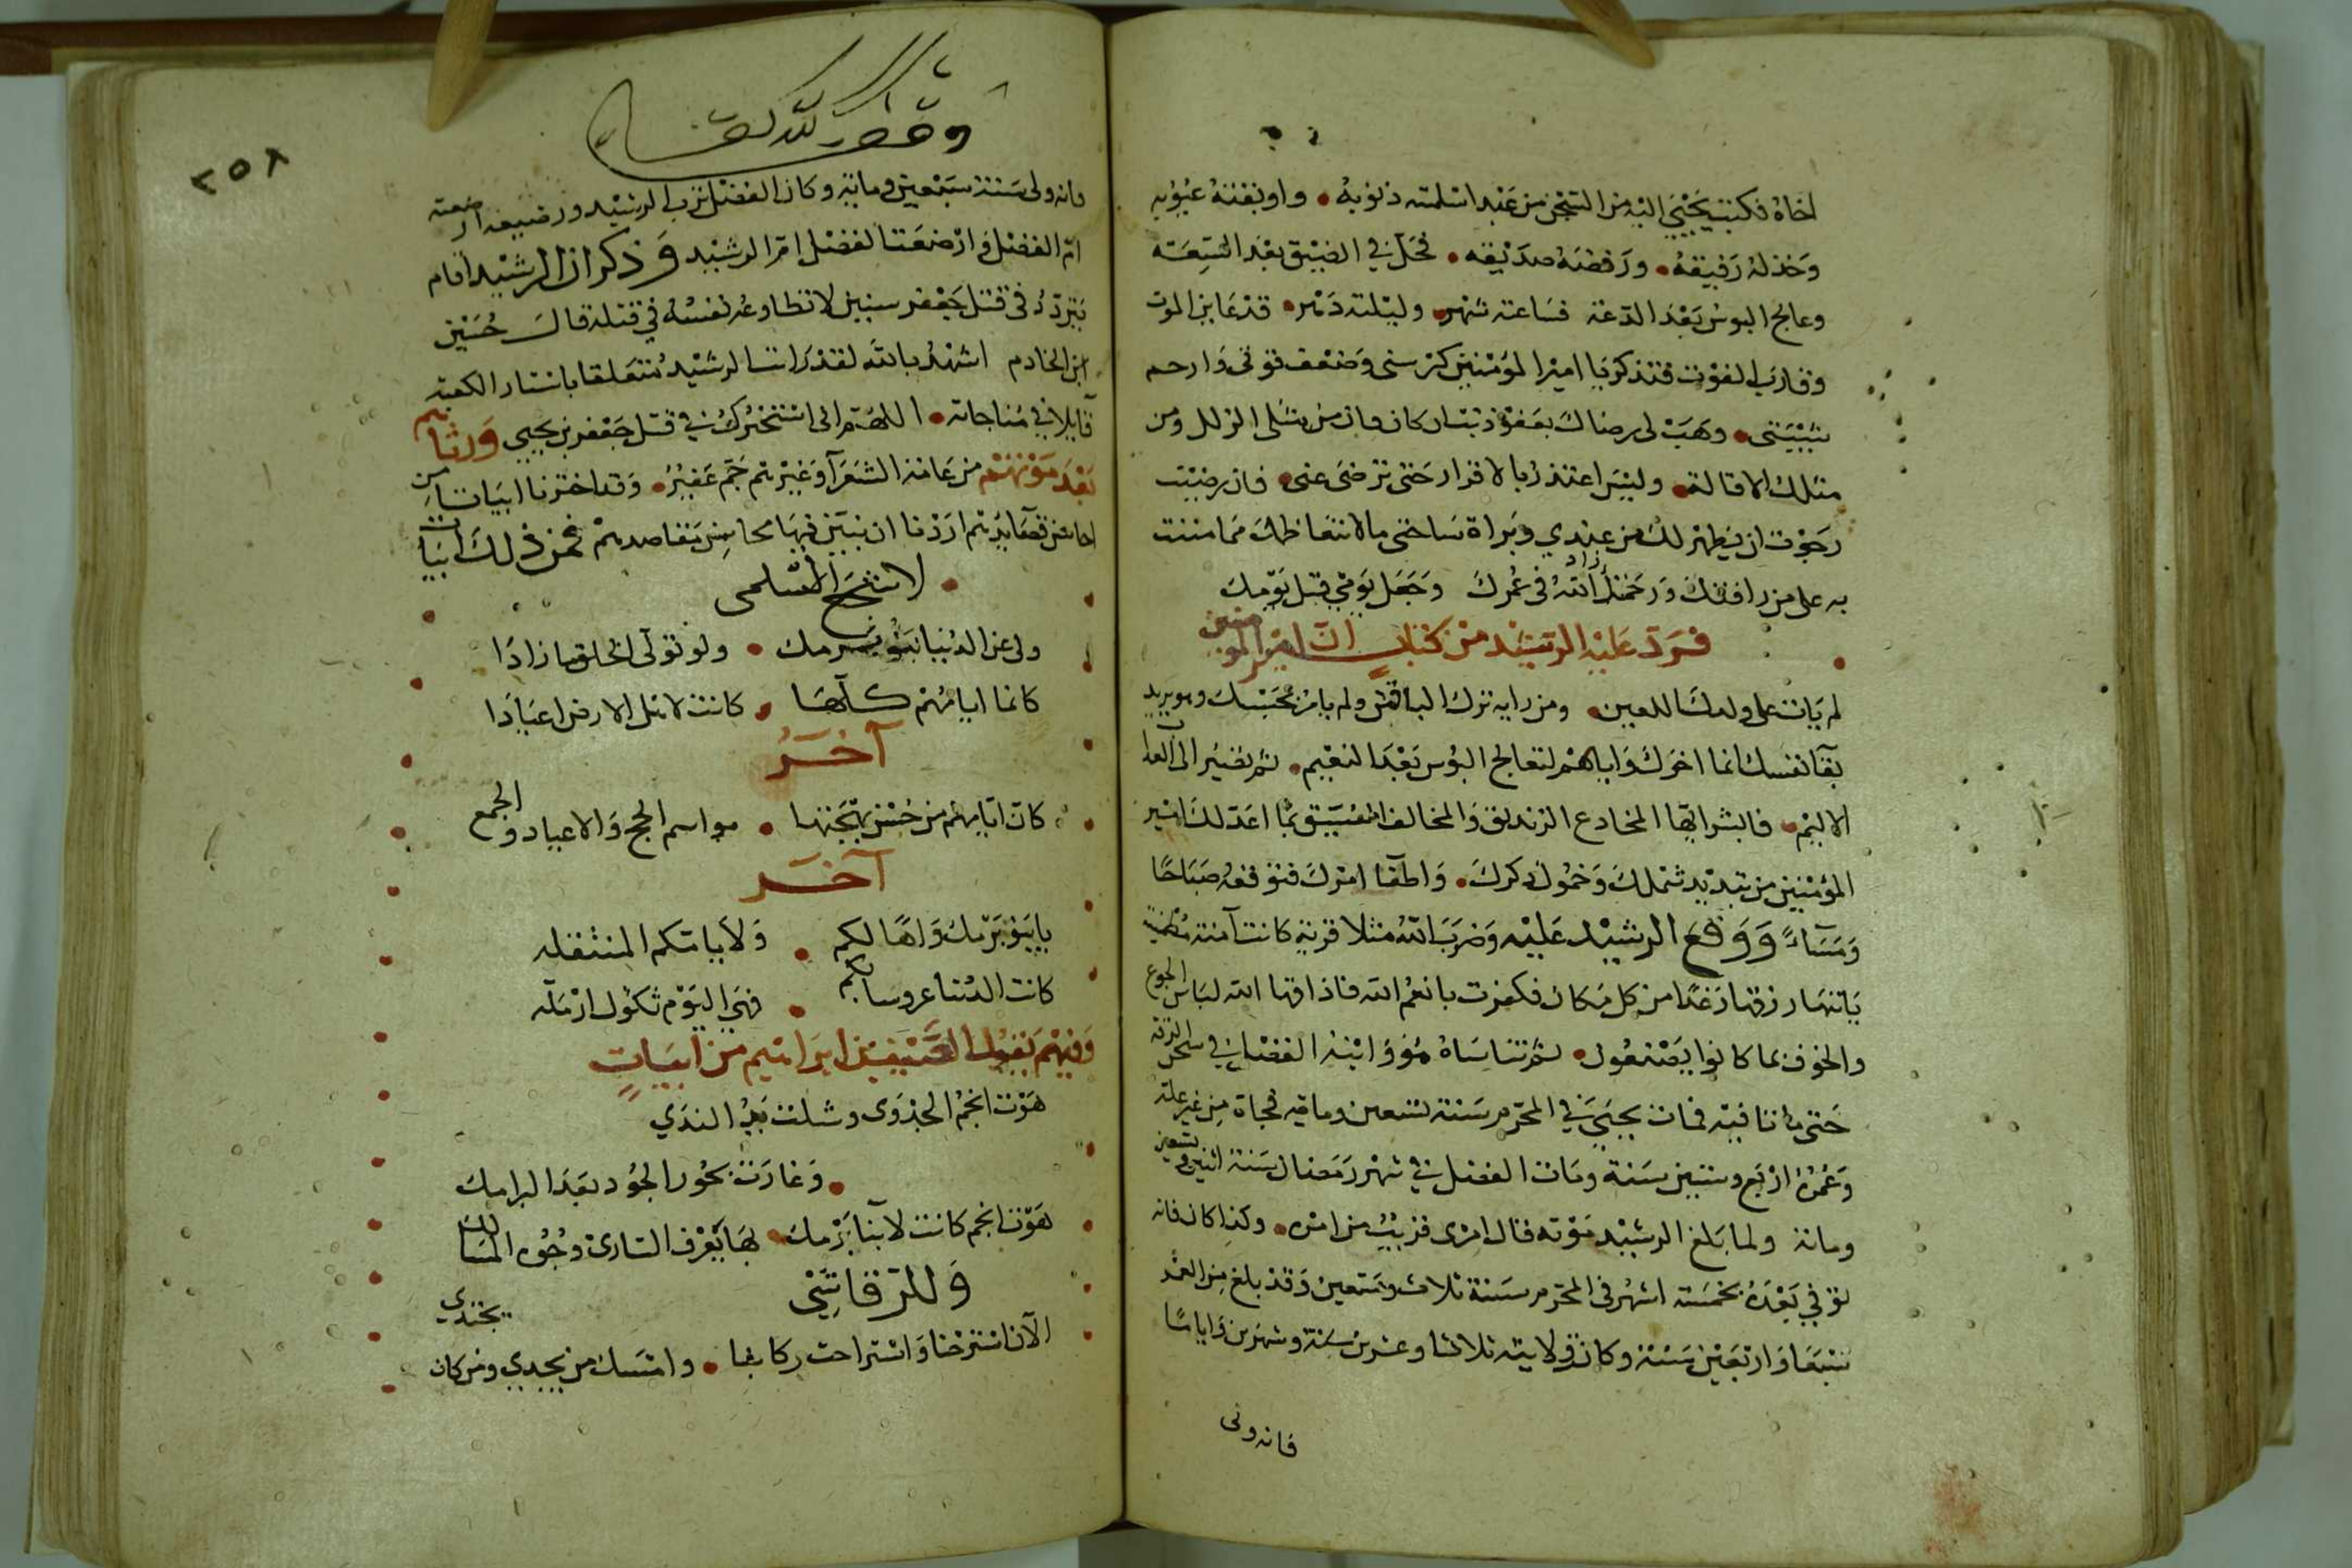 اخاه فكتب يحيى اليه من السجن من عبد اسلمته ذنوبه • واوبقته عيوبه
وخذله رفيقه • ورفضه صديقه • فحل في الضيق بعد السعة
وعالج البوس بعد الدعة فساعته شهر • وليلته دهر • قد عاين الموت
وقارب الفوت فتذكر يا امير المؤمنين كبر سني وضعف قوتي وارحم
شيبتي • وهب لي رضاك بعفو ذنب ان كان فان من مثلي الزلل ومن
مثلك الاقالة • وليس اعتذر بالاقرار حتى ترضى عني • فان رضيت
رجوت ان يظهر لك من عذري وبراة ساحتي مالا يتعاظمك مما مننت
به على من رافتك ورحمتك زاد الله في عمرك وجعل يومي قبل يومك
فرد عليه الرشيد من كتاب ان امير المومنين
لم يات على ولدك اللعين • ومن رايه ترك الباقين ولم يامر بحبسك وهو يريد
بقا نفسك انما اخرك واياهم لتعالج البؤس بعد النعيم • ثم تصير الى العذاب
الاليم • فابشر ايها المخادع الزنديق والمخالف الفسيق بما اعد لك امير
المؤمنين من تبديد شملك وخمول ذكرك • واطفا امرك فتوقعه صباحا
ومساء ووقع الرشيد عليه وضرب الله مثلا قرية كانت آمنة مطمئنة
ياتيها رزقها رغدا من كل مكان فكفرت بانعم الله فاذاقها الله لباس الجوع
والخوف بما كانوا يصنعون • ثم تناساه هو وابنه الفضل في سجن الرقة
حتى ماتا فيه فمات يحيى في المحرم سنة تسعين وماية فجاة من غير علة
وعمره اربع وستين سنة ومات الفضل في شهر رمضان سنة اثنين وتسعين
ومائة ولما بلغ الرشيد موته قال امري قريب من امره • وكذا كان فانه
توفي بعده بخمسة اشهر في المحرم سنة ثلاث وتسعين وقد بلغ من العمر
سبعا واربعين سنة وكان ولايته ثلاثا وعشرين سنة وشهرين واياما
فانه ولي
٢٥٨
وقف لله تعالى
فانه ولي سنة سبعين وماية وكان الفضل ترب الرشيد ورضيعه ارضعته
ام الفضل وارضعت الفضل ام الرشيد وذكر ان الرشيد اقام
يتردد في قتل جعفر سنين لا تطاوعه نفسه في قتله قال حسين
ابن الخادم اشهد بالله لقد رايت الرشيد متعلقا باستار الكعبة
قايلا في مناجاته • اللهم اني استخيرك في قتل جعفر بن يحيى ورثاهم
بعد موتهم من عامة الشعرآ وغيرهم جم غفير • وقد اخترنا ابياتا من
احاسن قصايدهم اردنا ان نبين فيها محاسن مقاصدهم فمن ذلك ابيات
• لاشجع السلمي
ولى عن الدنيا بنو برمك • ولو تولى الخلق ما زادا
كانما ايامهم كلها • كانت لاهل الارض اعيادا
آخر
كان ايامهم من حسن بهجتها • مواسم الحج والاعياد والجمع
آخر
يا بني برمك واها لكم • ولايامكم المنتقله
كانت الدنيا عروسا بكم • فهي اليوم ثكول ارمله
وفيهم يقول سيف بن ابراهيم من ابيات
هوت انجم الجدوى وشلت يد الندي
• وغارت بحور الجود بعد البرامك
هوت انجم كانت لابنا برمك • بها يعرف الساري وجوه المسالك
وللرقاشي
الآن استرحنا واستراحت ركابنا • وامسك من يجدي ومن كان يجتدي